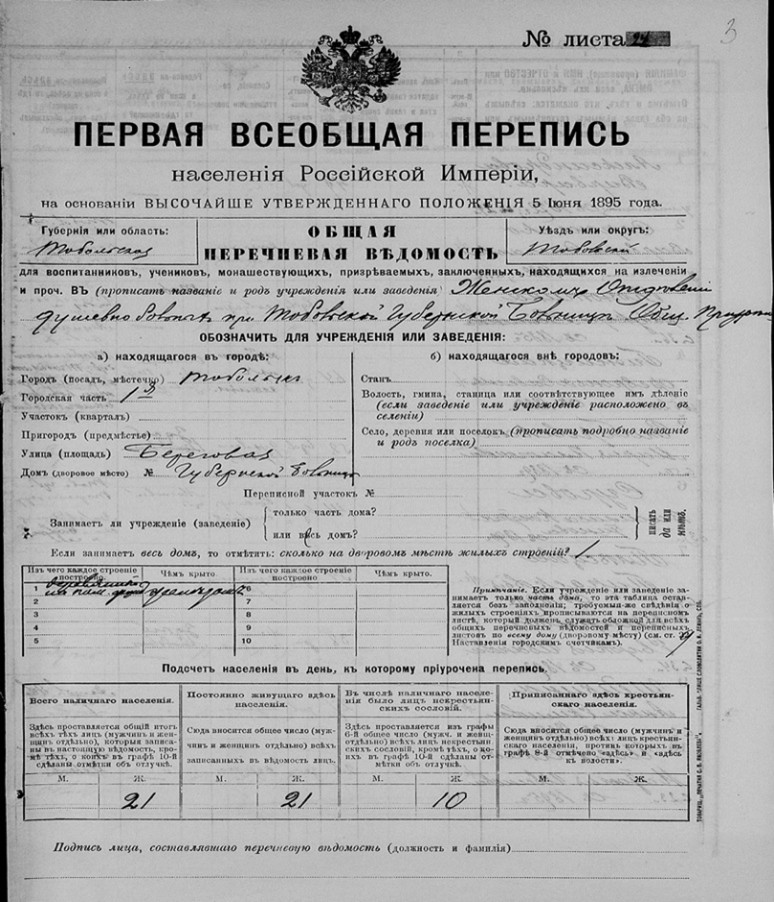 № листа 24
3
ПЕРВАЯ ВСЕОБЩАЯ ПЕРЕПИСЬ
населенія Россійской Имперіи,
на основаніи ВЫСОЧАЙШЕ УТВЕРЖДЕННАГО ПОЛОЖЕНІЯ 5 Іюня 1895 года.
Губернія или область:
Тобольская
ОБЩАЯ
ПЕРЕЧНЕВАЯ ВѢДОМОСТЬ
Уѣздъ или округъ:
Тобольскій
для воспитанниковъ, учениковъ, монашествующихъ, призрѣваемыхъ, заключенныхъ, находящихся на излеченіи
и проч. ВЪ (прописать названіе и родъ учрежденія или заведенія) Женскомъ Отдѣленіи
душевно больныхъ при Тобольской Губернской Больницѣ Общ.
ОБОЗНАЧИТЬ ДЛЯ УЧРЕЖДЕНІЯ ИЛИ ЗАВЕДЕНІЯ:
а) находящагося въ городѣ:
Городъ (посадъ, мѣстечко) Тобольскъ
Городская часть 1я
Участокъ (кварталъ)
Пригородъ (предмѣстье)
Улица (площадь) Береговая
Домъ (дворовое мѣсто) № Губернской Больницы
б) находящагося внѣ городовъ:
Станъ
Волость, гмина, станица или соотвѣтствующее имъ дѣленіе
(если заведеніе или учрежденіе расположено въ
селеніи)
Село, деревня или поселокъ (прописать подробно названіе
и родъ поселка)
Переписной участокъ №
Занимаетъ ли учрежденіе (заведеніе)
только часть дома?
или весь домъ?
писать
да или
нѣтъ.
Если занимаетъ весь домъ, то отмѣтить: сколько на дворовомъ мѣстѣ жилыхъ строеній? 1
Изъ чего каждое строеніе
построено.
Чѣмъ крыто.
Изъ чего каждое строеніе
построено
Чѣмъ крыто.
1 деревянный 6
2 7
3 8
4 9
5 10
Примѣчаніе. Если учрежденіе или заведеніе за-
нимаетъ только часть дома, то эта таблица оста-
вляется безъ заполненія; требуемыя-же свѣдѣнія о
жилыхъ строеніяхъ прописываются на переписномъ
листѣ, который долженъ служить обложкой для всѣхъ
общихъ перечневыхъ вѣдомостей и переписныхъ
листовъ по всему дому (дворовому мѣсту) (см. ст.
Наставленія городскимъ счетчикамъ).
Подсчетъ населенія въ день, къ которому пріурочена перепись.
Всего наличнаго населенія.
Здѣсь проставляется общій итогъ
всѣхъ тѣхъ лицъ (мужчинъ и жен-
щинъ отдѣльно), которыя записа-
ны въ настоящую вѣдомость, кро-
мѣ тѣхъ, о коихъ въ графѣ 10-й
сдѣланы отмѣтки объ отлучкѣ.
М. Ж.
21
Постоянно живущаго здѣсь
населенія.
Сюда вносится общее число (муж-
чинъ и женщинъ отдѣльно) всѣхъ
записанныхъ въ вѣдомость лицъ.
М. Ж.
21
Въ числѣ наличнаго населе-
нія было лицъ некрестьян-
скихъ сословій.
Здѣсь проставляется изъ графы
6-й общее число (мужч. и женщ.
отдѣльно) всѣхъ лицъ некрестьян-
скихъ сословій, кромѣ тѣхъ, о ко-
ихъ въ графѣ 10-й сдѣланы от-
мѣтки объ отлучкѣ.
М. Ж.
10
Приписаннаго здѣсь крестьян-
скаго населенія.
Сюда вносится общее число (мужчинъ
и женщинъ отдѣльно) лицъ крестьян-
скаго населенія, противъ которыхъ въ
графѣ 8-й отмѣчено «здѣсь» и «здѣсь
къ волости».
М. Ж.
Подпись лица, составлявшаго перечневую вѣдомость (должность и фамилія)